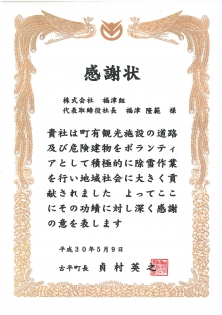 感謝状
株式会社 福津組
代表取締役社長 福津 隆範 様
貴社は町有観光施設の道路
及び危険建物をボランティ
アとして積極的に除雪作業
を行い地域社会に大きく貢
献されました よってここ
にその功績に対し深く感謝
の意を表します
平成30年5月9日
古平町長 貞村英之